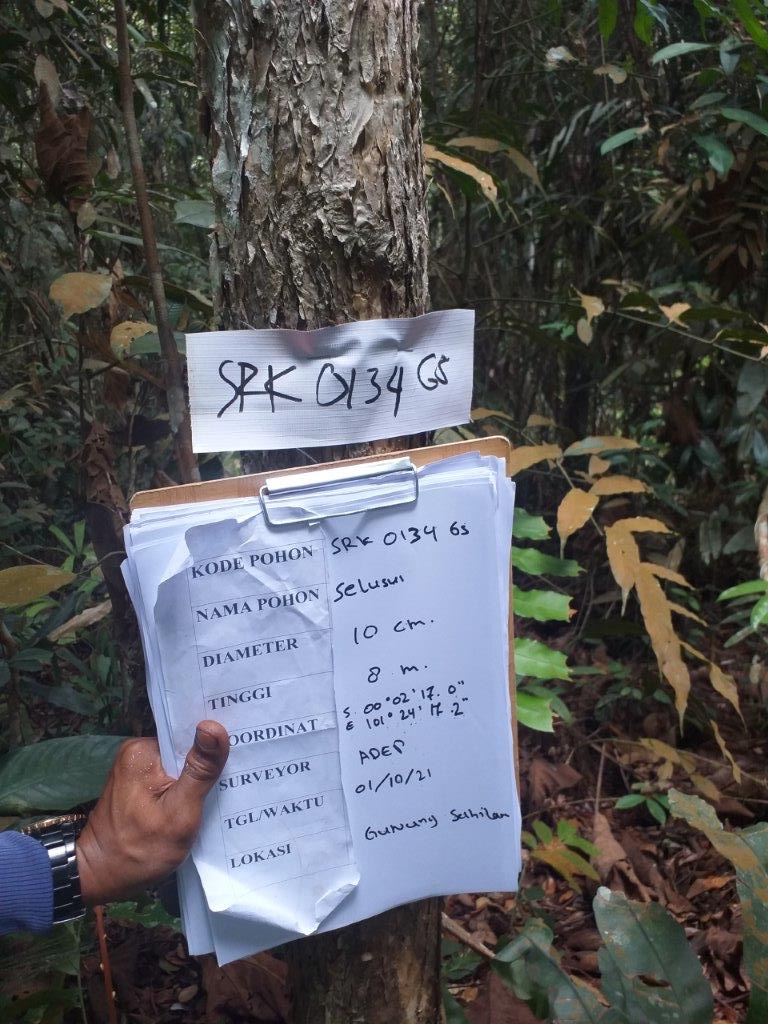 SRK 0134 GS
KODE POHON SRK 0134 GS
NAMA POHON Selusui
DIAMETER 10 cm.
TINGGI 8 m.
OORDINAT S. 00°02'17.0"
E 101°24'17.2"
SURVEYOR ADEP
TGL/WAKTU 01/10/21
LOKASI Gunung Sahilan